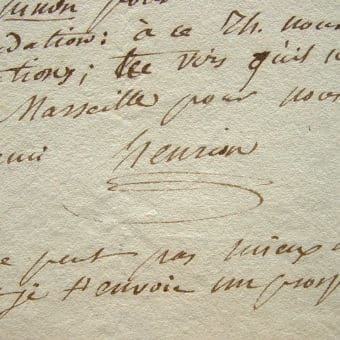 pour
dation: à ce Th. nous
tions; te vois qu'il
Marseille pour nous
Henrion
e peut pas mieux
je t'envoie un prosp